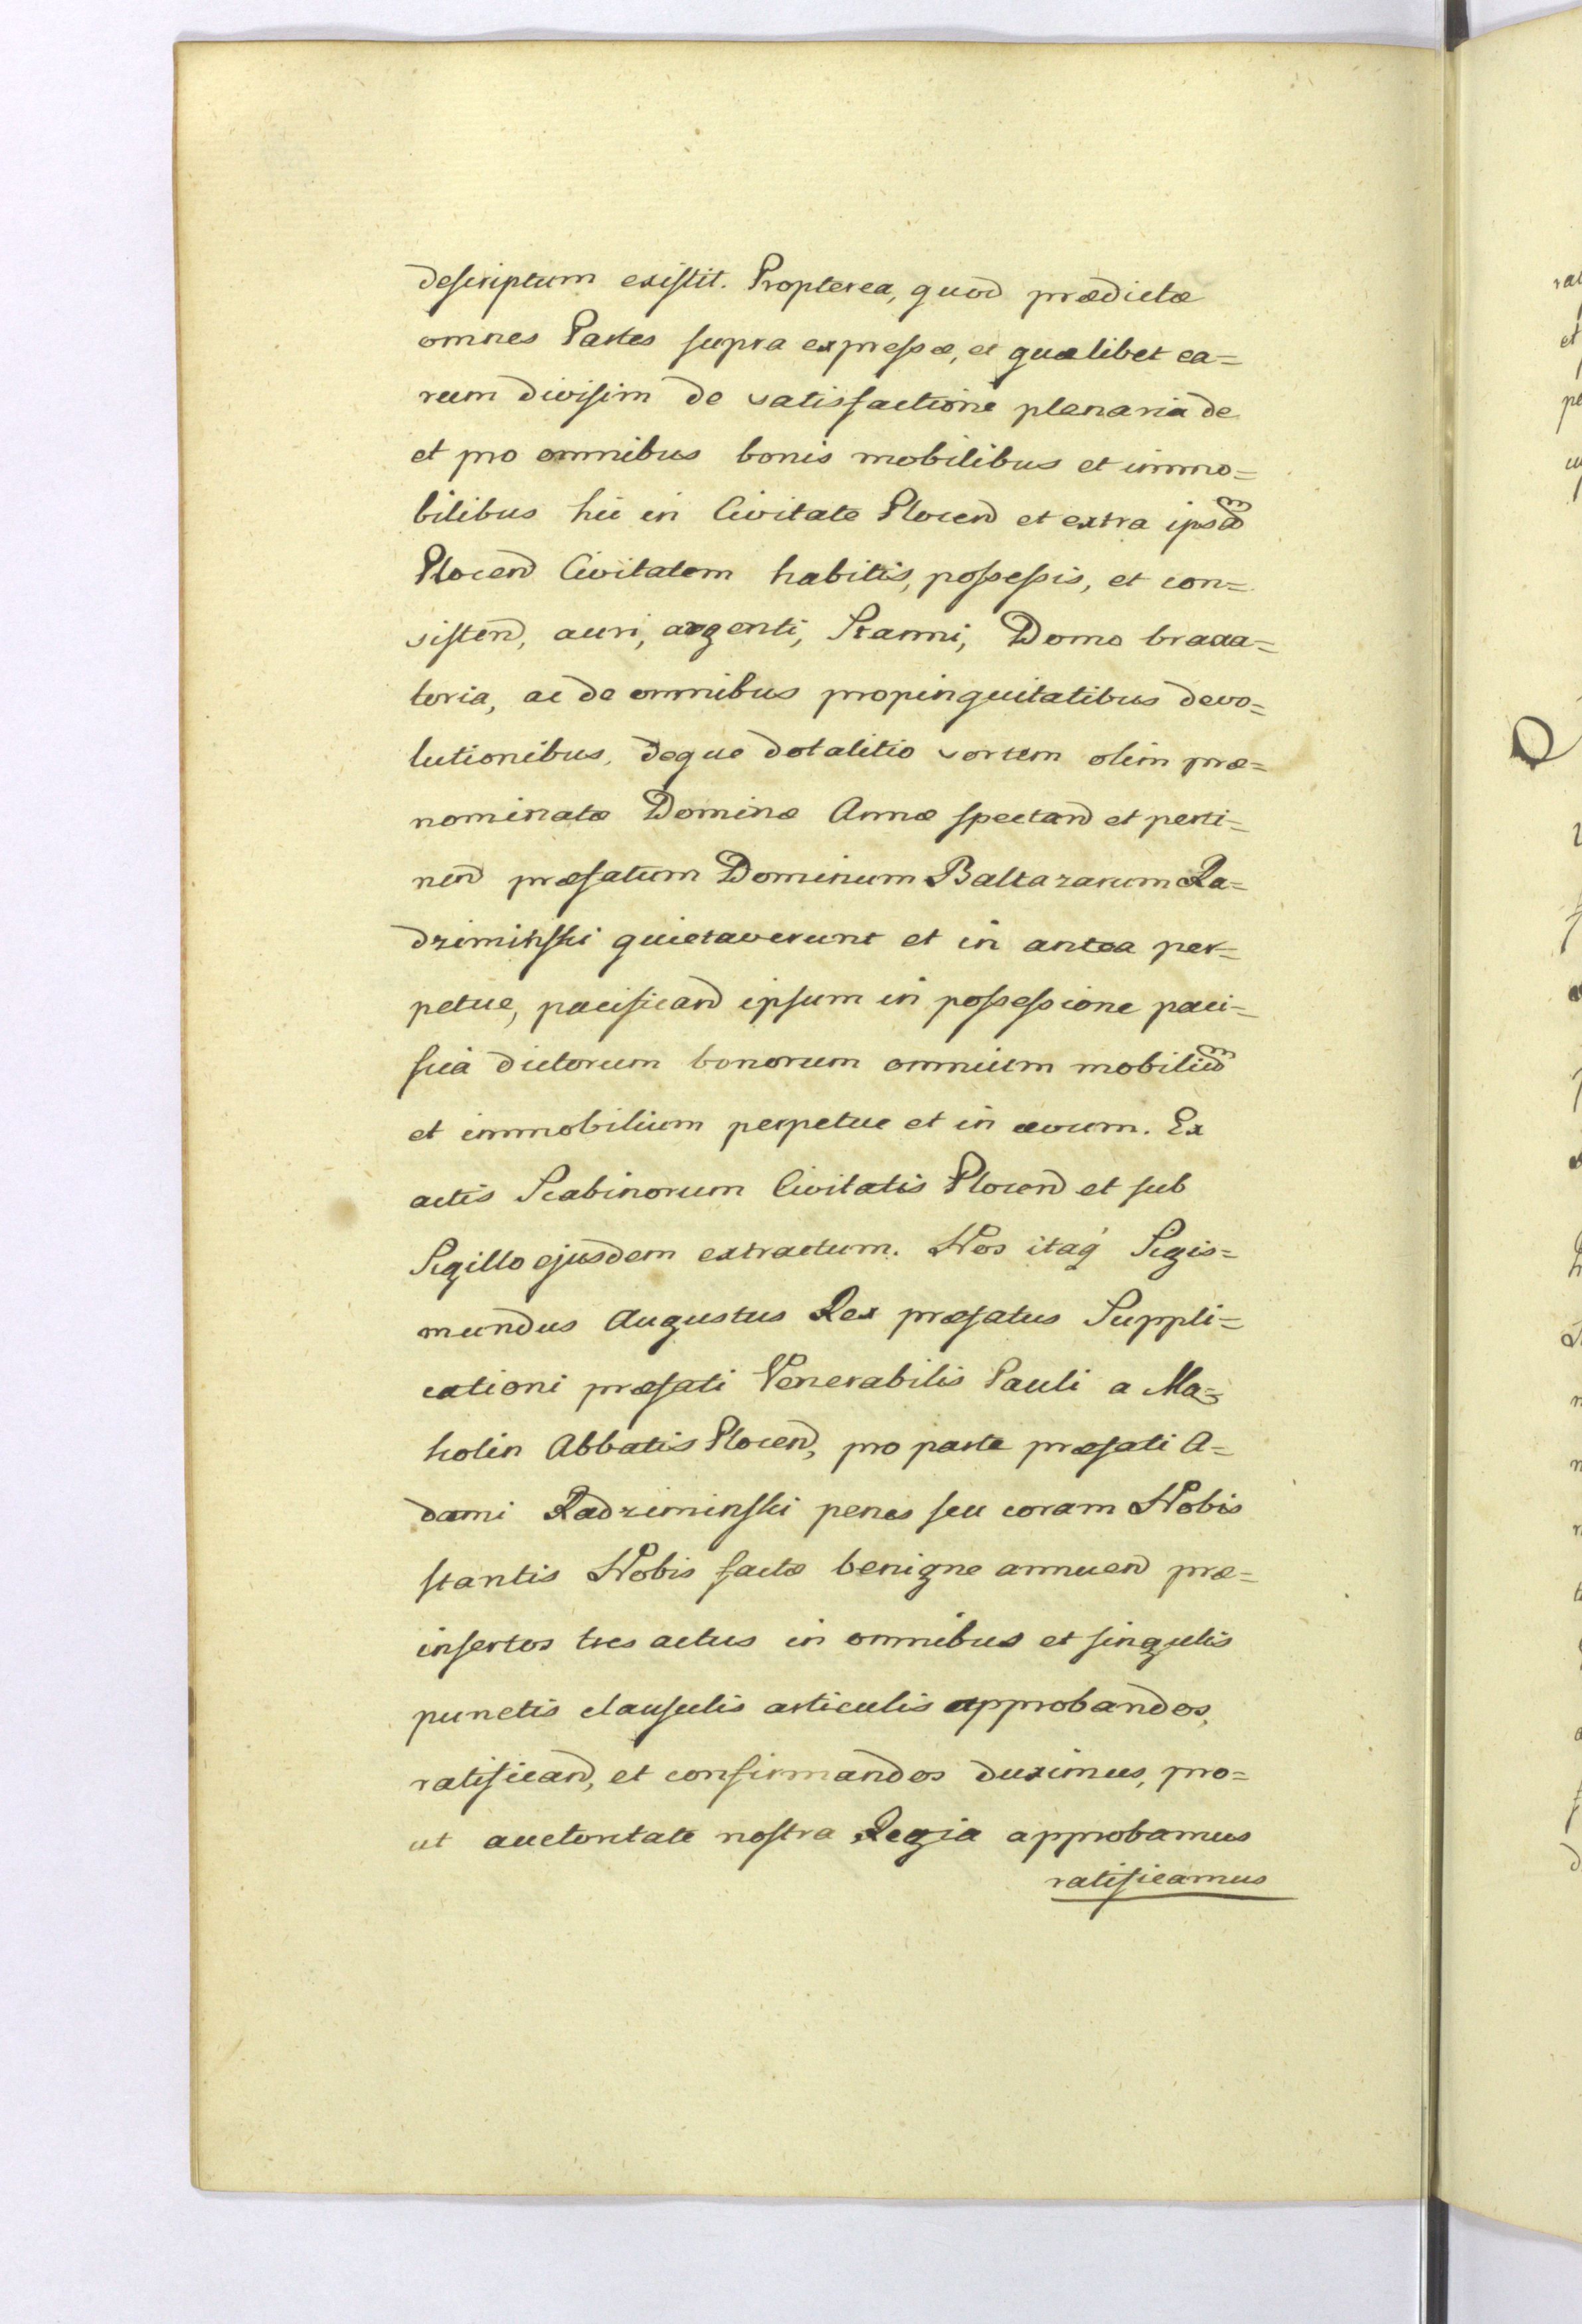 descriptum existit. Propterea, quod prædictæ
omnes Partes supra expressæ, et quælibet ea=
rum divisim de satisfactione plenaria de
et pro omnibus bonis mobilibus et immo=
bilibus hic in Civitate Plocen et extra ipsam
Plocen Civitatem habitis, possessis, et con=
sisten, auri, argenti, Stanni, Domo braxa=
toria, ac de omnibus propinquitatibus devo=
lutionibus, deque dotalitio sortem olim præ=
nominatæ Dominæ Annæ spectan et perti=
nen præfatum Dominum Baltazarum Ra=
dziminski quietaverunt et in antea per=
petue, pacifican ipsum in possessione paci=
fica dictorum bonorum omnium mobilium
et immobilium perpetue et in ævum. Ex
actis Scabinorum Civitatis Plocen et sub
Sigillo ejusdem extractum. Nos itaq Sigis=
mundus Augustus Rex præfatus Suppli=
cationi præfati Venerabilis Pauli a Ma=
kolin Abbatis Plocen, pro parte præfati A=
dami Radziminski penes seu coram Nobis
stantis Nobis factæ benigne annuen præ=
insertos tres actus in omnibus et singulis
punctis clausulis articulis approbandos,
ratifican, et confirmandos duximus, pro=
ut auctoritate nostra Regia approbamus
ratificamus